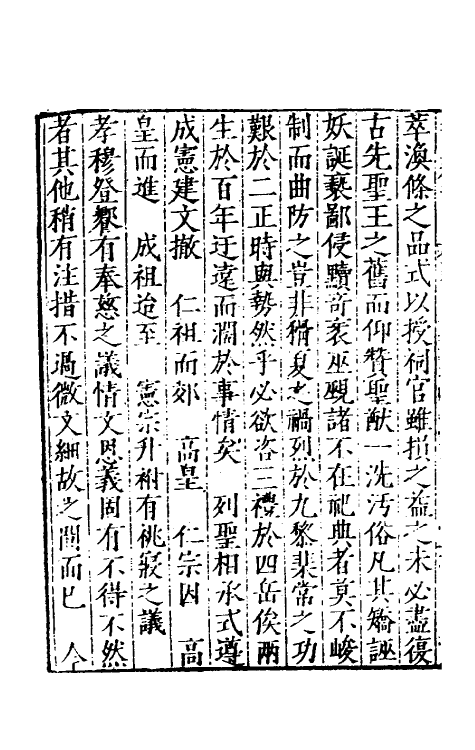 萃渙條之品式以授祠官雖損之益之未必盡復
古先聖王之舊而仰贊聖猷一洗汚俗凡其矯誣
妖誕䙝鄙侵黷奇衺巫覡諸不在祀典者莫不峻
制而曲防之豈非猾夏之禍烈於九黎棐常之功
艱於二正時與勢然乎必欲咨三禮於四岳俟兩
生於百年迂遠而濶於事情矣　列聖相承式遵
成憲建文撤　仁祖而郊　高皇　仁宗因　高
皇而進　成祖迨至　憲宗升祔有祧寢之議
孝穆登饗有奉慈之議情文恩義固有不得不然
者其他稍有注措不過微文細故之間而已　今